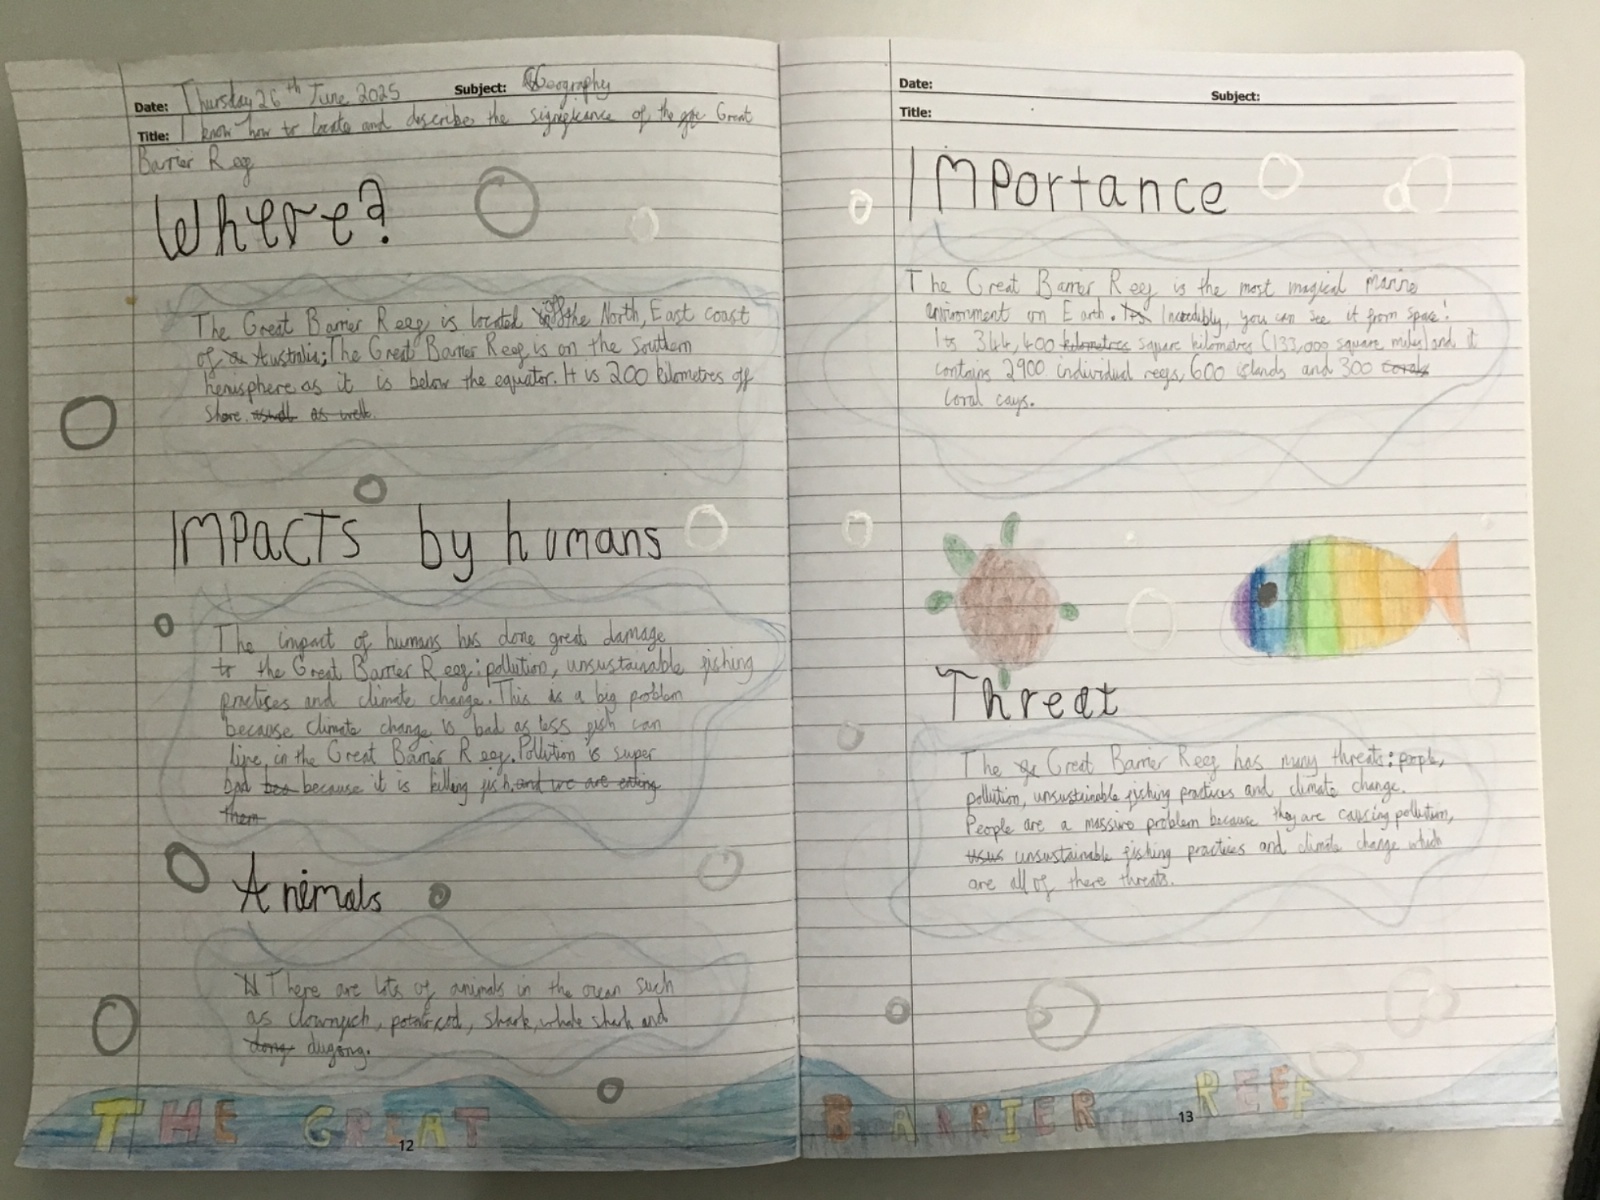 Date: Thursday 26th June 2025 Subject: Geography
Title: I know how to locate and describe the significance of the Great
Barrier Reef
Where?
The Great Barrier Reef is located off the North, East coast
of Australia; The Great Barrier Reef is on the Southern
hemisphere as it is below the equator. It is 200 kilometres off
shore. as well.
IMPACTS by humans
The impact of humans has done great damage
to the Great Barrier Reef: pollution, unsustainable fishing
practices and climate change. This is a big problem
because climate change is bad as less fish can
live, in the Great Barrier Reef. Pollution is super
bad because it is killing fish, and we are eating
them
Animals
There are lots of animals in the ocean such
as clownfish, potato cod, shark, whale shark and
dugong.
THE GREAT
12
Date: Subject:
Title:
IMPortance
The Great Barrier Reef is the most magical marine
environment on Earth. Incredibly, you can see it from space!
Its 344,400 kilometres square kilometres (133,000 square miles) and it
contains 2900 individual reefs, 600 islands and 300 corals
coral cays.
Threat
The Great Barrier Reef has many threats: people,
pollution, unsustainable fishing practices and climate change.
People are a massive problem because they are causing pollution,
unsustainable fishing practices and climate change which
are all of there threats.
BARRIER REEF
13